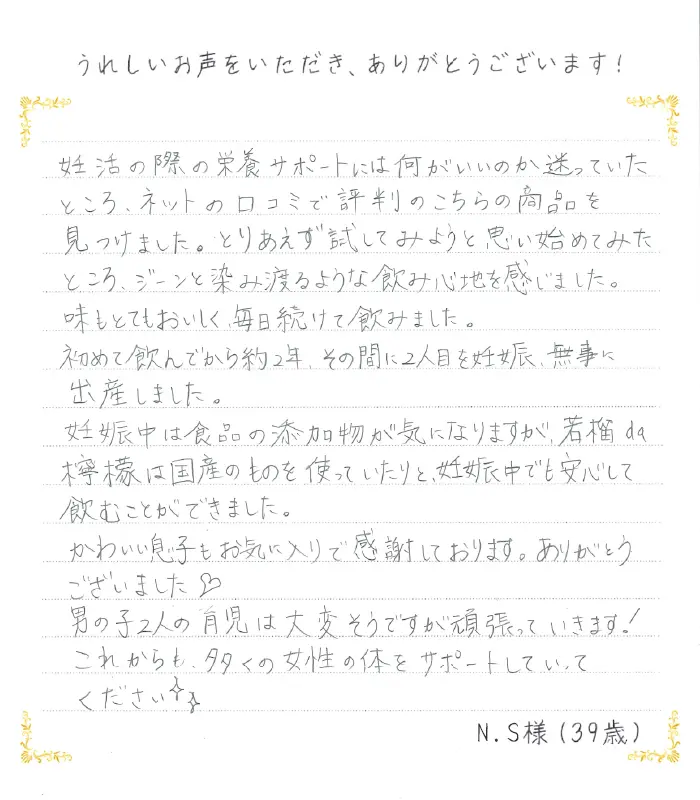 うれしいお声をいただき、ありがとうございます!
妊活の際の栄養サポートには何がいいのか迷っていた
ところ、ネットの口コミで評判のこちらの商品を
見つけました。とりあえず試してみようと思い始めてみた
ところ、ジーンと染み渡るような飲み心地を感じました。
味もとてもおいしく、毎日続けて飲みました。
初めて飲んでから約2年、その間に2人目を妊娠、無事に
出産しました。
妊娠中は食品の添加物が気になりますが、若榴da
檸檬は国産のものを使っていたりと、妊娠中でも安心して
飲むことができました。
かわいい息子もお気に入りで感謝しております。ありがとう
ございました♡
男の子2人の育児は大変そうですが頑張っていきます!
これからも、多くの女性の体をサポートしていって
ください
N.S様(39歳)